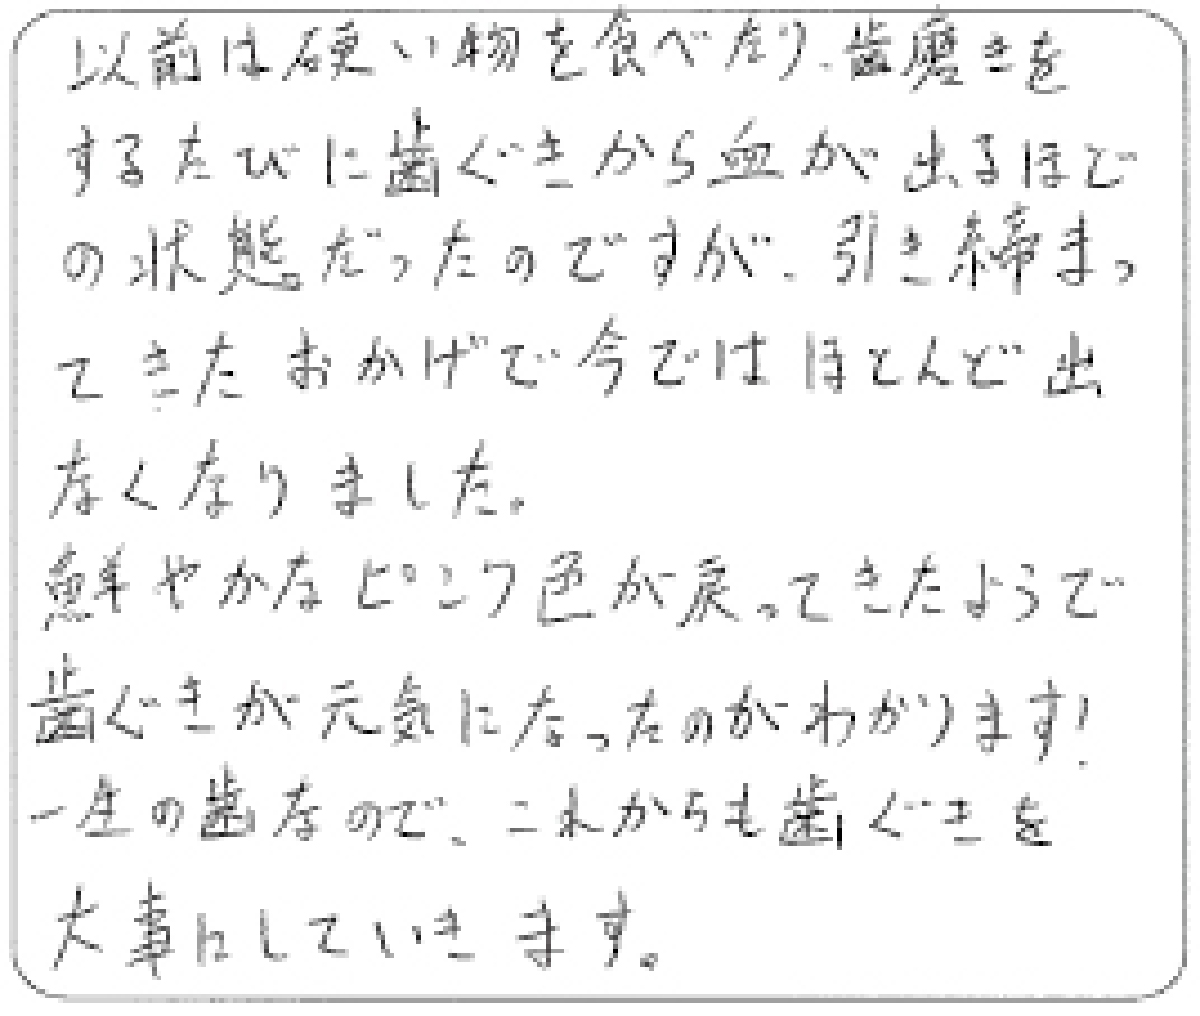 以前は硬い物を食べたり、歯磨きを
するたびに歯ぐきから血が出るほど
の状態だったのですが、引き締まっ
てきたおかげで今ではほとんど出
なくなりました。
鮮やかなピンク色が戻ってきたようで
歯ぐきが元気になったのがわかります!
一生の歯なので、これからも歯ぐきを
大事にしていきます。